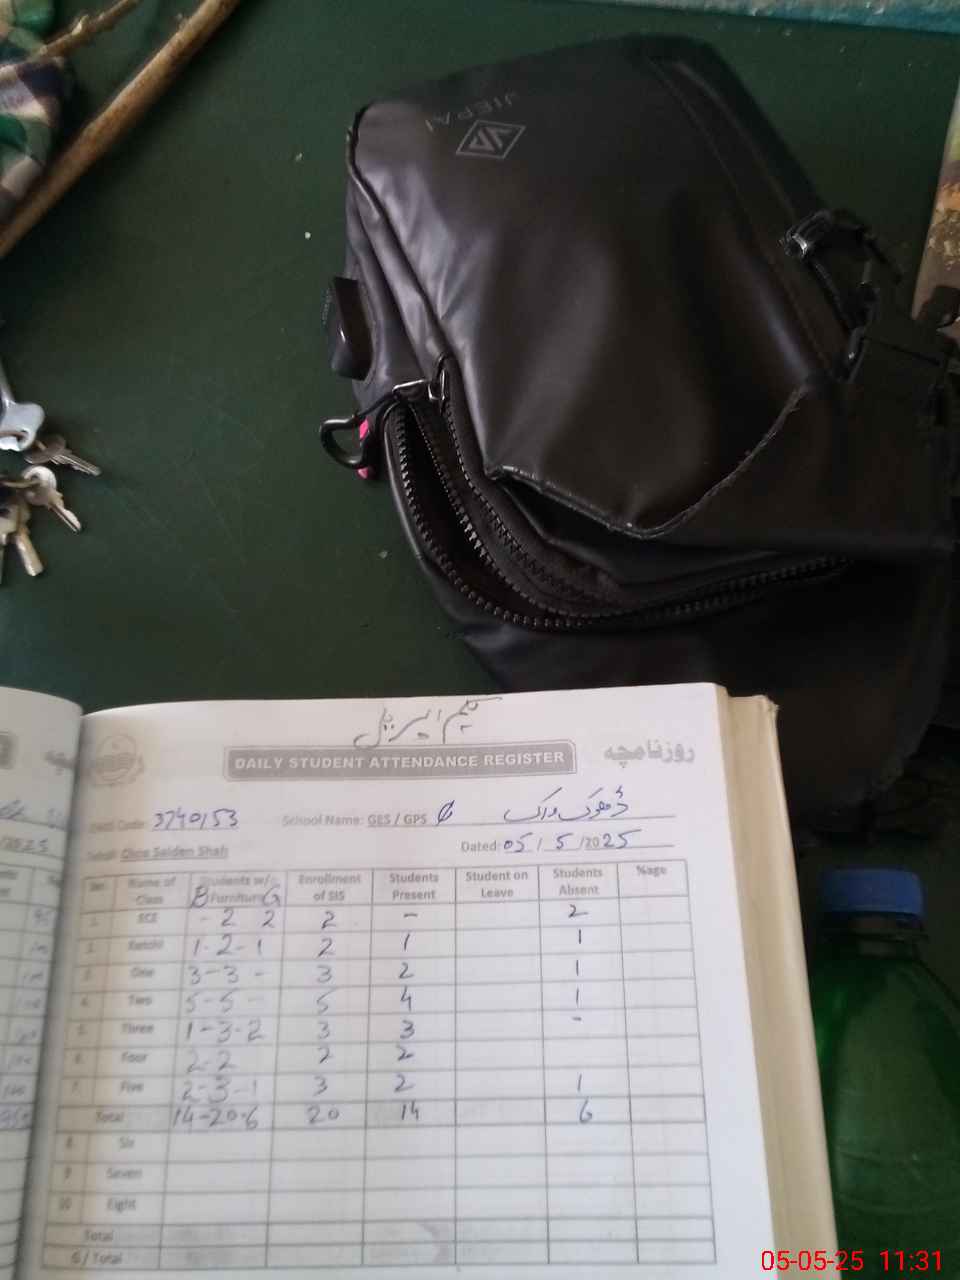 JIEPAI
یکم اپریل
DAILY STUDENT ATTENDANCE REGISTER روزنامچہ
Code: 3740153 School Name: GES / GPS ڈھوک
Choa Saiden Shah Dated: 05 / 5 /2025
Name of Class Students w/o Furniture B G Enrollment of SIS Students Present Student on Leave Students Absent %age
1. ECE - 2 2 2 - 2
2. Katchi 1-2-1 2 1 1
3. One 3-3- 3 2 1
4. Two 5-5- 5 4 1
5. Three 1-3-2 3 3 -
6. Four 2-2 2 2
7. Five 2-3-1 3 2 1
Total 14-20-6 20 14 6
8 Six
9 Seven
10 Eight
Total
G / Total
05-05-25 11:31